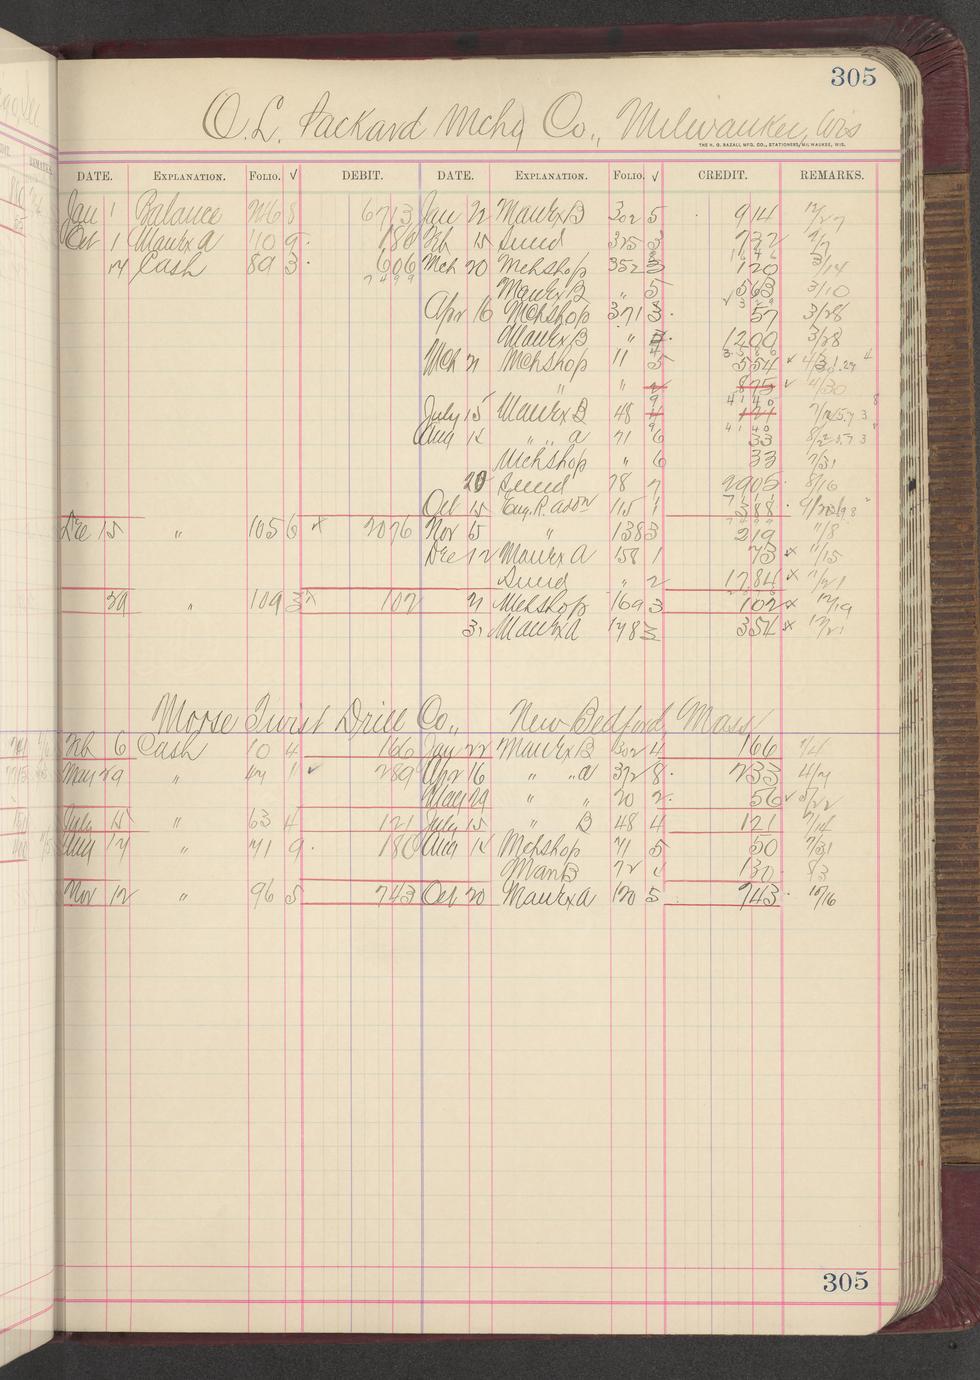 305
O. L. Packard Mchy Co., Milwaukee, Wis
THE H. G. RAZALL MFG. CO., STATIONERS, MILWAUKEE, WIS.
DATE. EXPLANATION. FOLIO. √ DEBIT. DATE. EXPLANATION. FOLIO. √ CREDIT. REMARKS.
Jan 1 Balance 8 6713 Jan 22 Manex B 302 5 914
Oct 1 Manex a 110 9 180 Feb 15 Sund 325 3 732
14 Cash 89 3 606 Mch 20 Mchshop 352 3 120 3/14
7499 Manex B " 5 563 3/10
Apr 16 Mchshop 371 3 57 3/28
Manex B " 1200 3/28
Mch 21 Mchshop 11 5 554
" " 875 4/30
4140
July 15 Manex B 48 121
4140
Aug 15 " " a 71 6 33
Mchshop " 6 33 7/31
20 Sund 78 7 2905 8/16
Oct 15 Eug. P. 115 1 388
Dec 15 " 105 6 x 2076 Nov 5 " 138 3 219 "/8
Dec 12 Manex A 158 1 73 x "/15
Sund " 2 1784 x "/21
29 " 109 3 x 102 21 Mchshop 169 3 102 x 12/19
31 Manex A 178 3 354 x 12/21
Morse Twist Drill Co., New Bedford, Mass
Feb 6 Cash 10 4 166 Jan 22 Manex B 302 4 166 1/4
May 29 " 47 1 √ 289 Apr 16 " " a 372 8 233 4/7
May 29 " " 20 2 56 √ 5/22
July 15 " 63 4 121 July 15 " B 48 4 121 7/14
Aug 17 " 71 9 180 Aug 15 Mchshop 71 5 50 7/31
Man B 72 130 8/3
Nov 12 " 96 5 743 Oct 20 Manex a 120 5 743 10/16
305